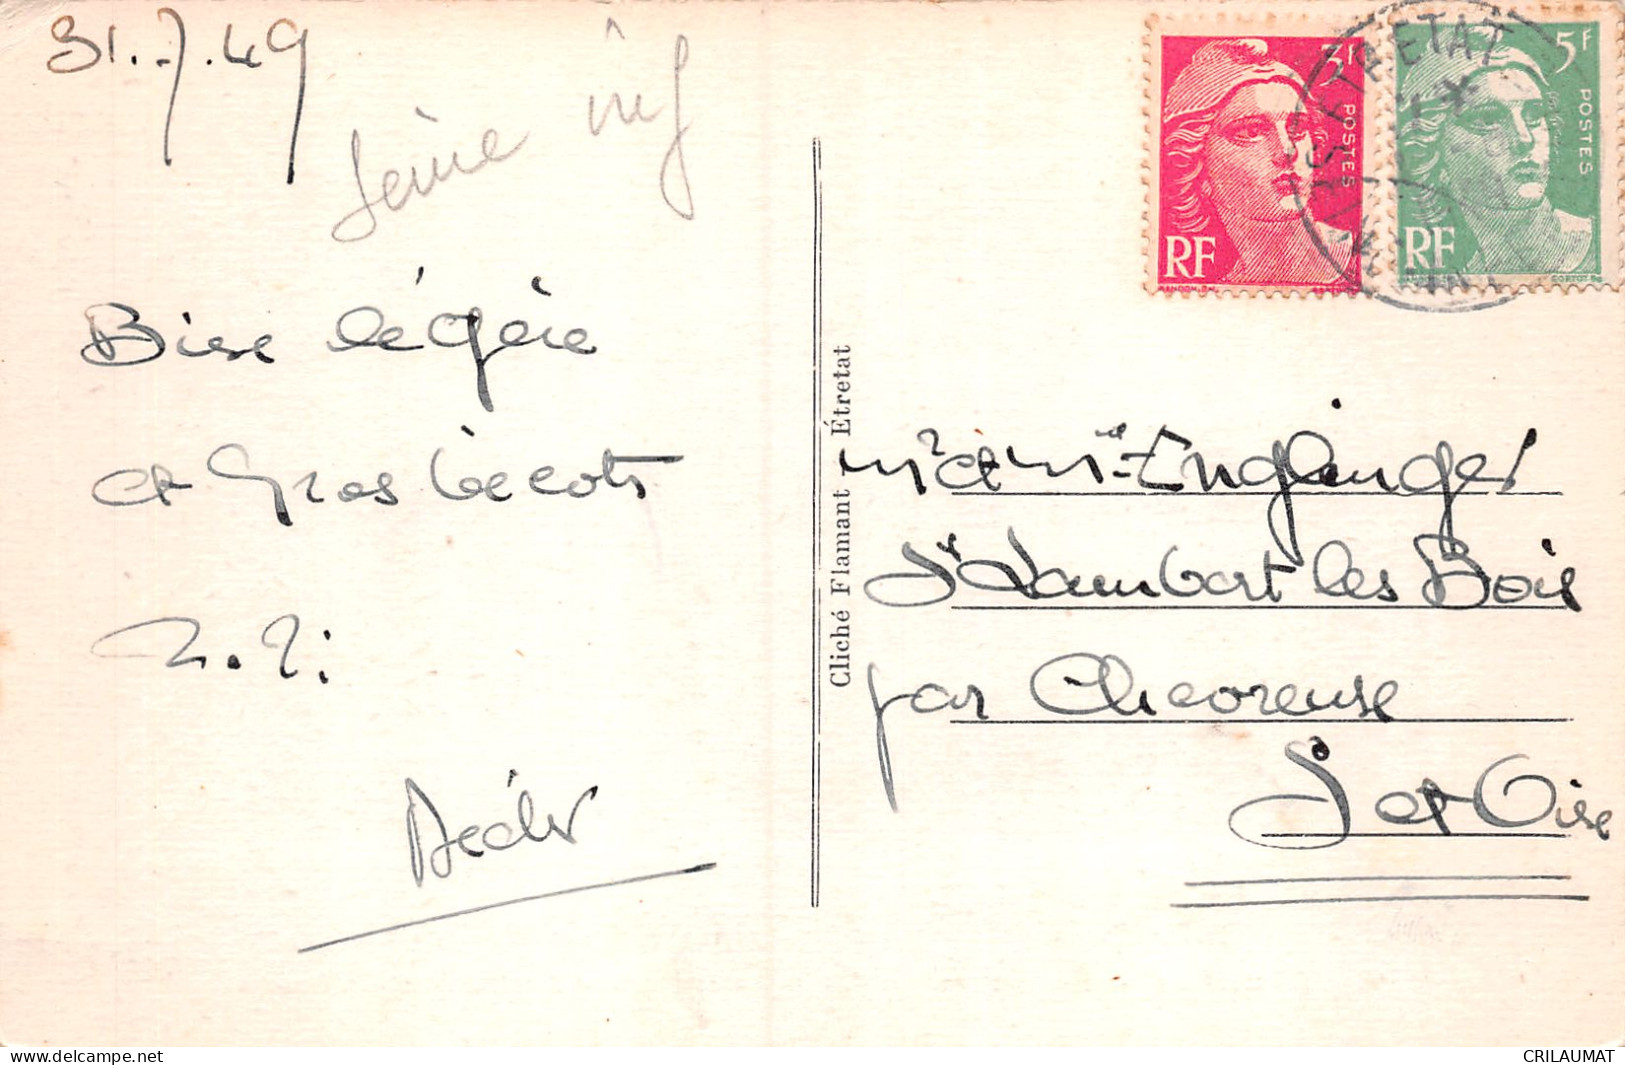 31.7.49
Seine inf
Bise légère
et Gros bécots
Cliché Flamant Étretat
3F
POSTES
RF
5F
POSTES
RF
ETRETAT
Mr et Mme Englinger
St Lambert les Bois
par Chevreuse
S et Oise
www.delcampe.net
CRILAUMAT